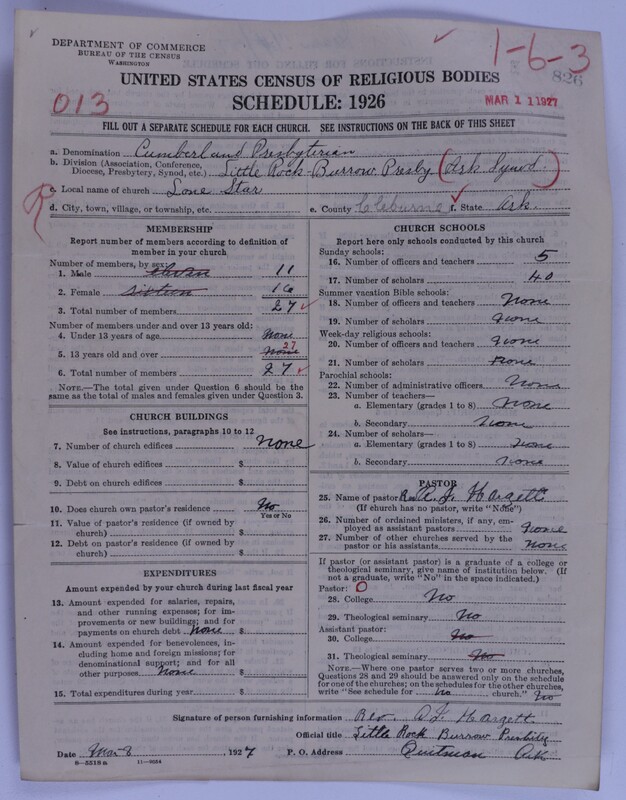 DEPARTMENT OF COMMERCE
BUREAU OF THE CENSUS
WASHINGTON
1-6-3
826
UNITED STATES CENSUS OF RELIGIOUS BODIES
013
SCHEDULE: 1926
MAR 11 1927
FILL OUT A SEPARATE SCHEDULE FOR EACH CHURCH. SEE INSTRUCTIONS ON THE BACK OF THIS SHEET
a. Denomination Cumberland Presbyterian
b. Division (Association, Conference, Diocese, Presbytery, Synod, etc.) Little Rock-Burrow Presby (Ark Synod)
c. Local name of church Lone Star
d. City, town, village, or township, etc. e. County Cleburne f. State Ark.
MEMBERSHIP
Report number of members according to definition of member in your church
Number of members, by sex:
1. Male eleven 11
2. Female sixteen 16
3. Total number of members 27
Number of members under and over 13 years old:
4. Under 13 years of age None
5. 13 years old and over None 27
6. Total number of members 27
NOTE.—The total given under Question 6 should be the same as the total of males and females given under Question 3.
CHURCH BUILDINGS
See instructions, paragraphs 10 to 12
7. Number of church edifices None
8. Value of church edifices $
9. Debt on church edifices $
10. Does church own pastor's residence No
Yes or No
11. Value of pastor's residence (if owned by church) $
12. Debt on pastor's residence (if owned by church) $
EXPENDITURES
Amount expended by your church during last fiscal year
13. Amount expended for salaries, repairs, and other running expense; for improvements or new buildings; and for payments on church debt None $
14. Amount expended for benevolences, including home and foreign missions; for denominational support; and for all other purposes None $
15. Total expenditures during year $
CHURCH SCHOOLS
Report here only schools conducted by this church
Sunday schools:
16. Number of officers and teachers 5
17. Number of scholars 40
Summer vacation Bible schools:
18. Number of officers and teachers None
19. Number of scholars None
Week-day religious schools:
20. Number of officers and teachers None
21. Number of scholars None
Parochial schools:
22. Number of administrative officers None
23. Number of teachers—
a. Elementary (grades 1 to 8) None
b. Secondary None
24. Number of scholars—
a. Elementary (grades 1 to 8) None
b. Secondary None
PASTOR
25. Name of pastor A. J. Hargett
(If church has no pastor, write "None")
26. Number of ordained ministers, if any, employed as assistant pastors None
27. Number of other churches served by the pastor or his assistants None
If pastor (or assistant pastor) is a graduate of a college or theological seminary, give name of institution below. (If not a graduate, write "No" in the space indicated.)
Pastor: 0
28. College No
29. Theological seminary No
Assistant pastor:
30. College No
31. Theological seminary No
NOTE.—Where one pastor serves two or more churches, Questions 28 and 29 should be answered only on the schedule for one of the churches; on the schedules for the other churches, write "See schedule for No church." No
Signature of person furnishing information Rev. A J. Hargett
Official title Little Rock Burrow Presbity
Date Mar 8, 1927 P. O. Address Quitman Ark
8—5519 a 11—8034